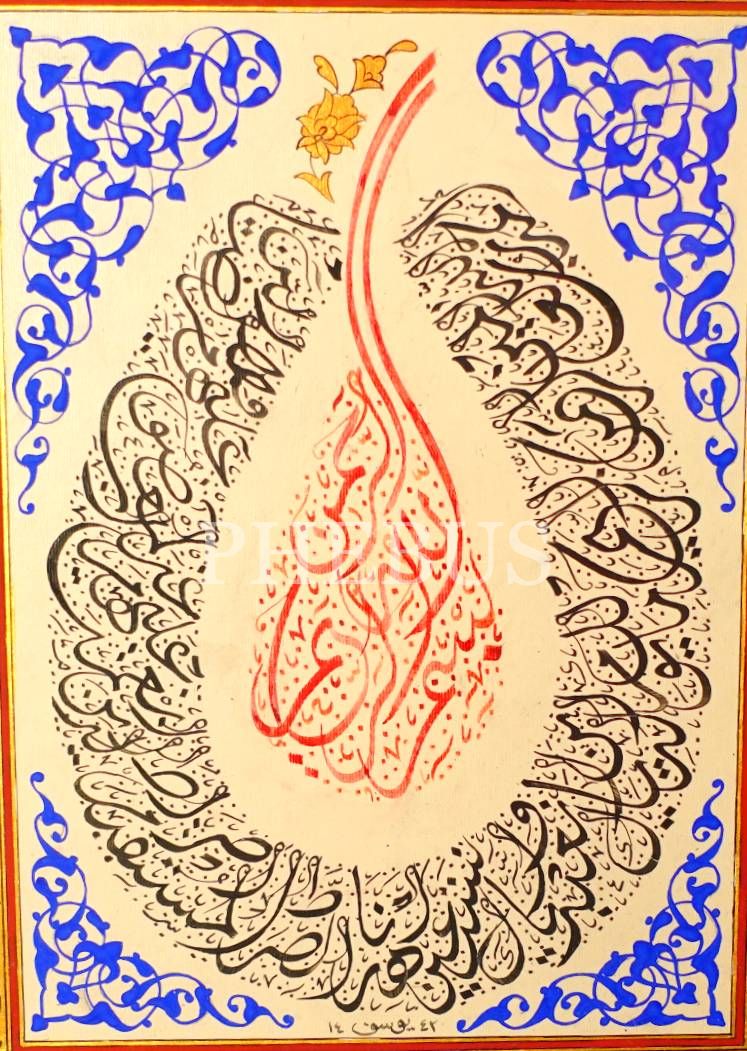 بسم الله الرحمن الرحيم
الحمد لله رب العالمين الرحمن الرحيم مالك يوم الدين اياك نعبد واياك نستعين اهدنا الصراط المستقيم صراط الذين انعمت عليهم غير المغضوب عليهم ولا الضالين
PHEBUS